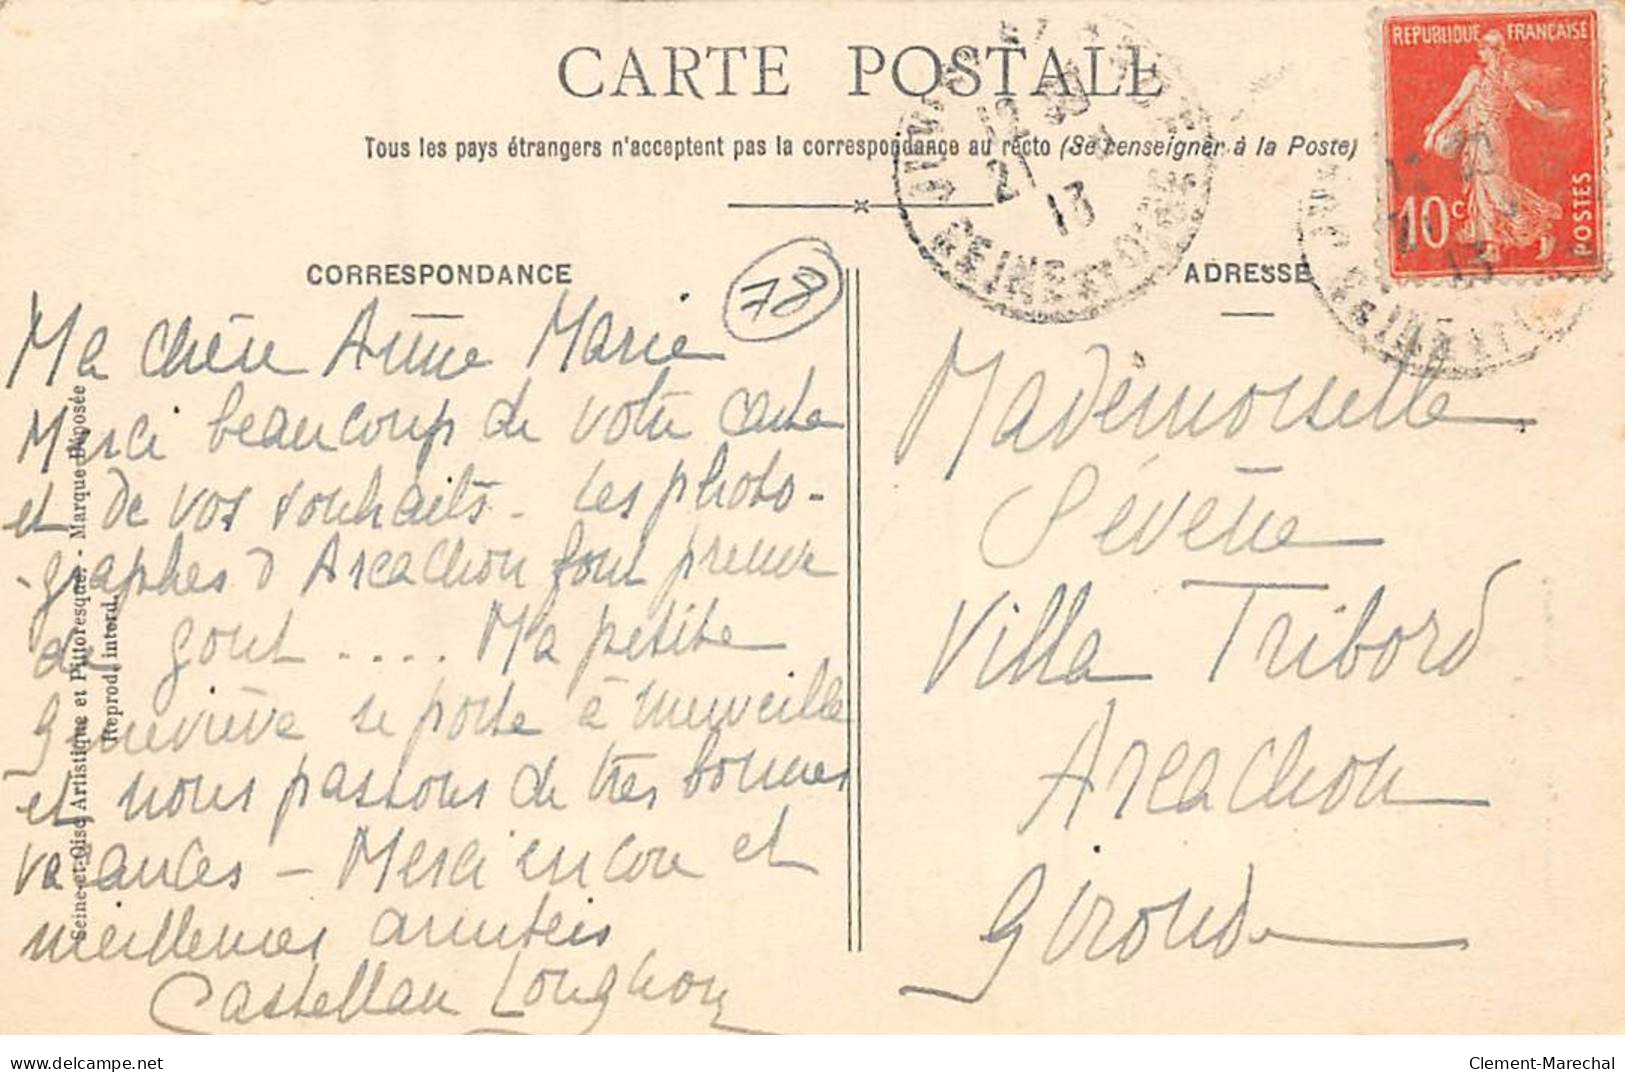 CARTE POSTALE
Tous les pays étrangers n'acceptent pas la correspondance au recto (Se renseigner à la Poste)
REPUBLIQUE FRANÇAISE
10c
POSTES
12
21
13
SEINE ET OISE
CORRESPONDANCE
78
Ma chère Anne Marie
Merci beaucoup de votre carte
et de vos souhaits - Les photo-
graphes d'Arcachon font preuve
de gout .... Ma petite
Geneviève se porte à merveille
et nous passons de très bonnes
vacances - Merci encore et
meilleures amitiés
Castellan Longchon
ADRESSE
Mademoiselle
Sévène
Villa Tribord
Arcachon
Gironde
Seine-et-Oise Artistique et Pittoresque. - Marque Déposée
Reprod. interd.
delcampe.net
Clement-Marechal